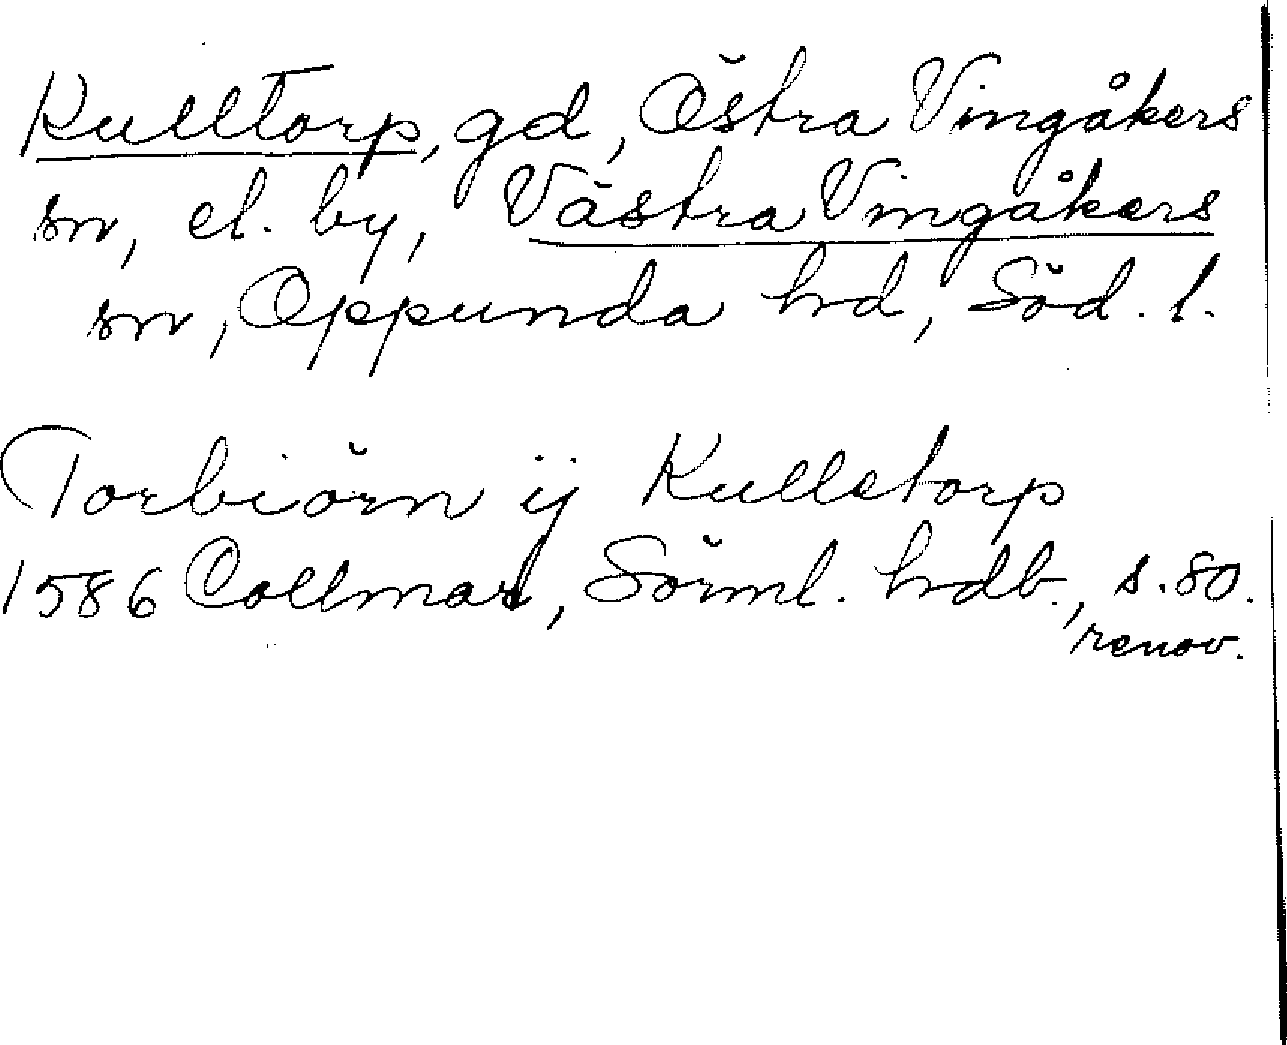 Kulltorp, gd, Östra Vingåkers
sn, el. by, Västra Vingåkers
sn, Oppunda hd, Söd. l.
Torbiörn ij Kulletorp
1586 Collmar, Sörml. hdb., s. 80.
renov.